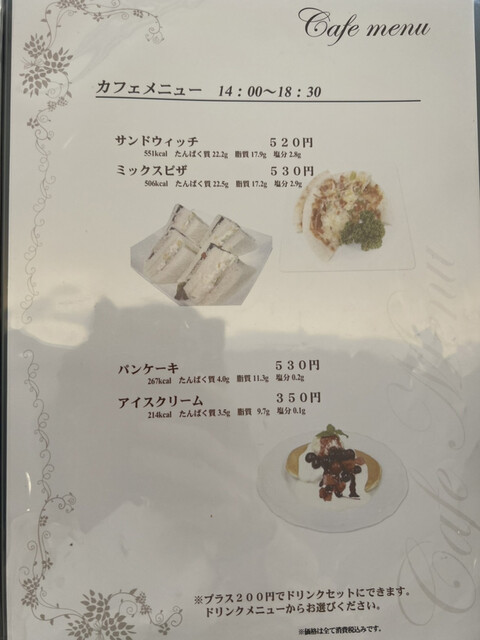 Cafe menu
カフェメニュー 14：00～18：30
サンドウィッチ 520円
551kcal たんぱく質 22.2g 脂質 17.9g 塩分 2.8g
ミックスピザ 530円
506kcal たんぱく質 22.5g 脂質 17.2g 塩分 2.9g
パンケーキ 530円
267kcal たんぱく質 4.0g 脂質 11.3g 塩分 0.2g
アイスクリーム 350円
214kcal たんぱく質 3.5g 脂質 9.7g 塩分 0.1g
Cafe Menu
※プラス200円でドリンクセットにできます。
ドリンクメニューからお選びください。
※価格は全て消費税込みです。